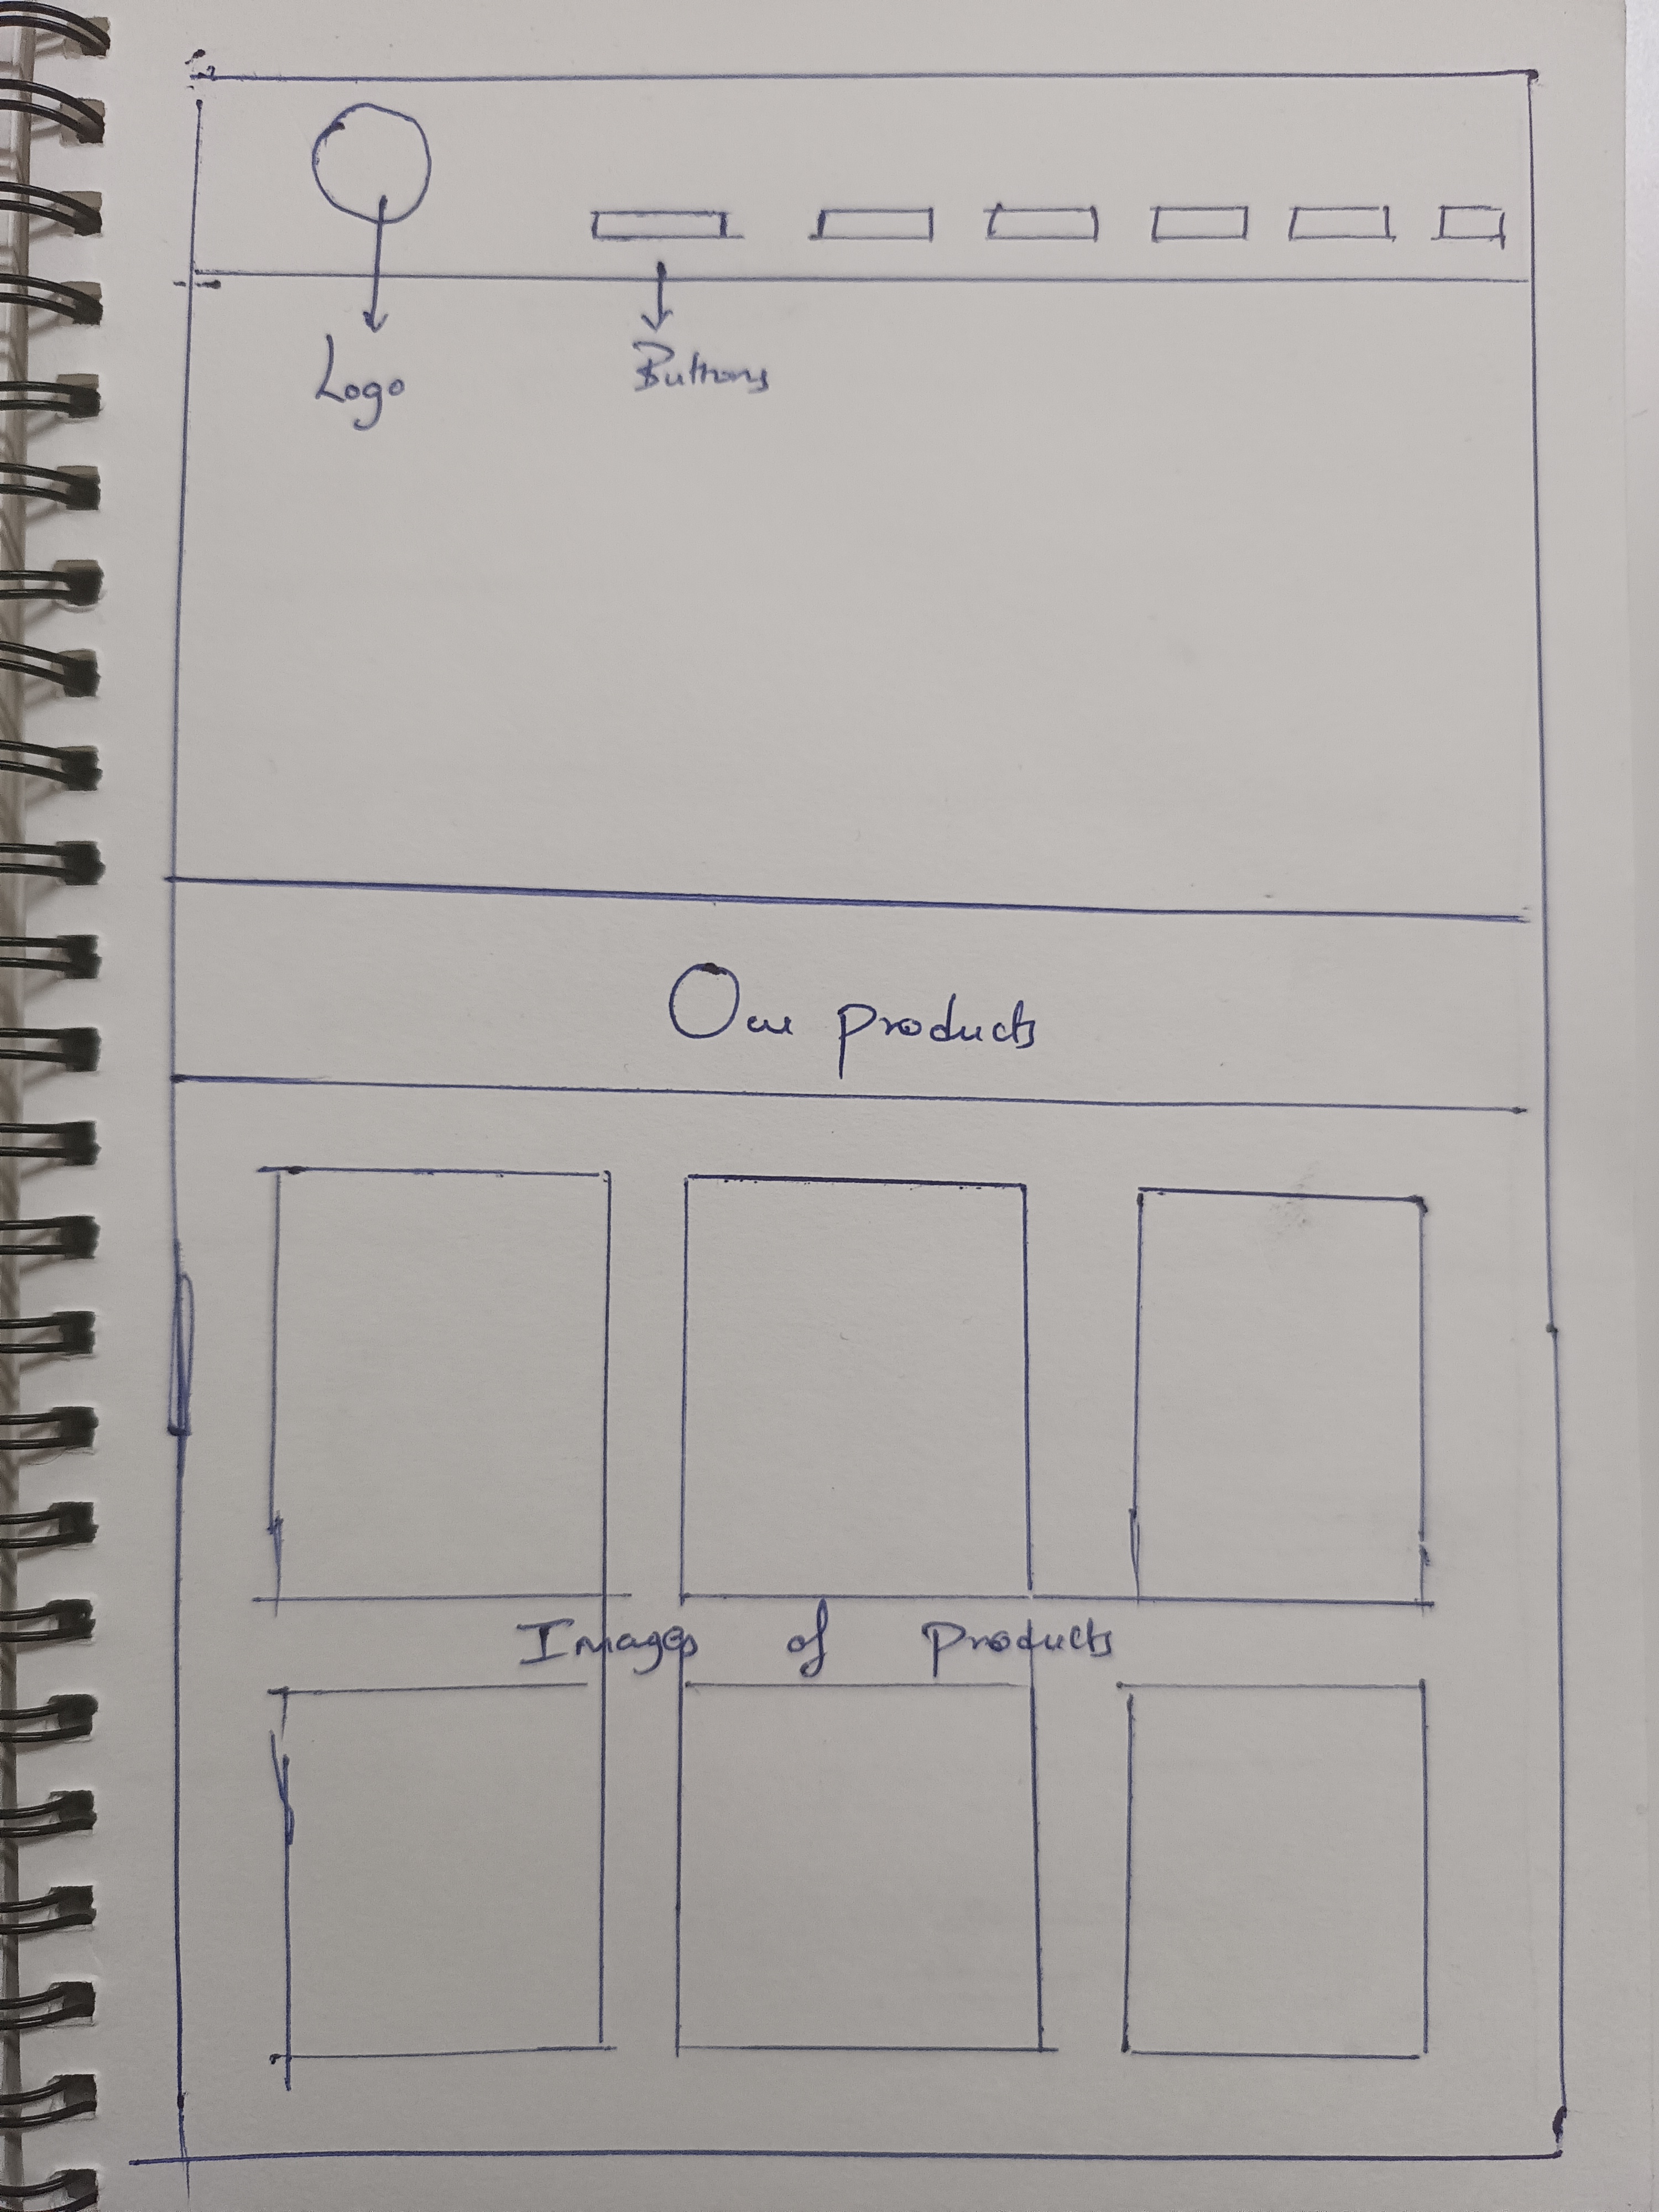 Logo
Buttons
Our products
Images of Products